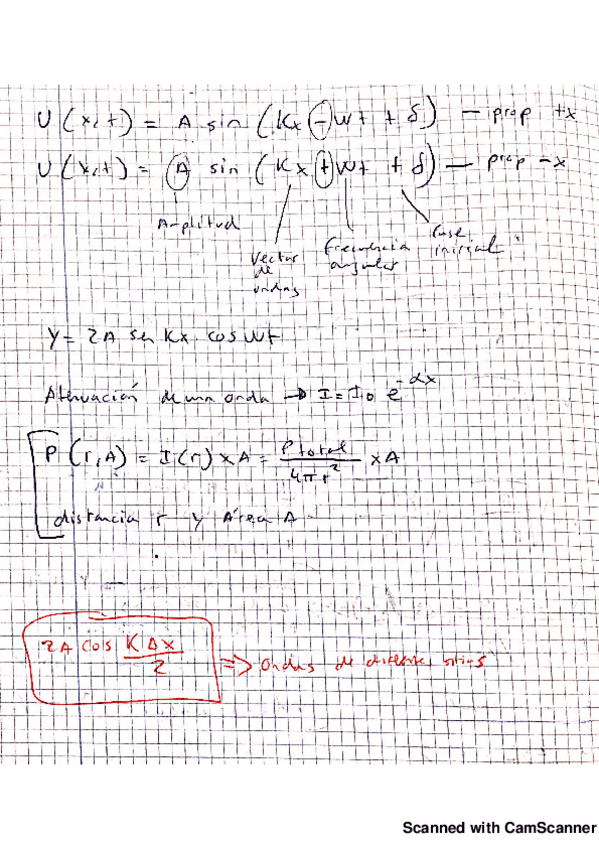 U(x,t) = A sin (Kx - wt + δ) — prop +x
U(x,t) = A sin (Kx + wt + δ) — prop -x
Amplitud
Vector de ondas
Frecuencia angular
Fase inicial
y = 2A sen Kx . cos wt
Atenuación de una onda → I = I0 e^-αx
P(r,A) = I(r) x A = Ptotal / 4πr² x A
distancia r y Área A
2A cos KΔx / 2 => Ondas de
Scanned with CamScanner